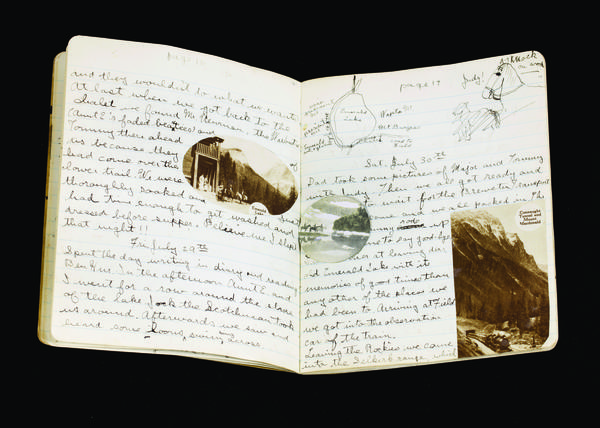 page 16
and they wouldn't do what we wanted.
At last when we got back to the
Chalet we found Mr Stevenson, the
(Aunt E's faded beau) and
Tommy there ahead of
us because they
had come over the
lower trail. We were
thoroughly soaked and just
had time enough to get washed and
dressed before supper. Believe me I slept
that night!!
Fri. July 29th
Spent the day writing in diary and reading
Ben Hur. In the afternoon Aunt E. and
I went for a row around the
of the lake. Jock the Scotchman took
us around. Afterwards we saw and
heard some
page 17
Judy!
Emerald
Lake
Wapta Mt
Mt Burgess
Sat. July 30th
Dad took some pictures of Major and Tommy
with Judy. Then we all got ready and
went for the Brewster Transport
and we all packed in. The
rode up
to say good-bye
at leaving dear
old Emerald Lake with its
memories of good times than
any other of the places we
had been to. Arriving at Field
we got into the observation
car of the train.
Leaving the Rockies we came
into the Selkirk range, which
Connaught
Tunnel and
Mount
Macdonald